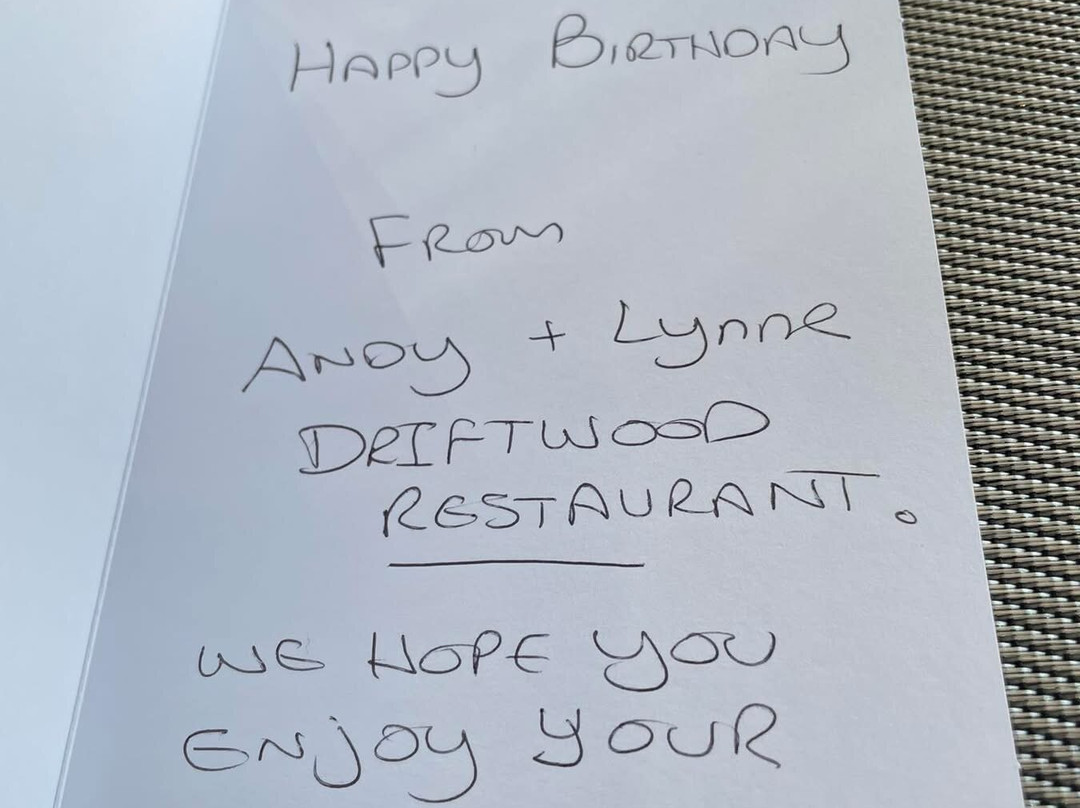 HAPPY BIRTHDAY
FROM
ANDY + Lynne
DRIFTWOOD
RESTAURANT.
WE HOPE YOU
ENJOY YOUR